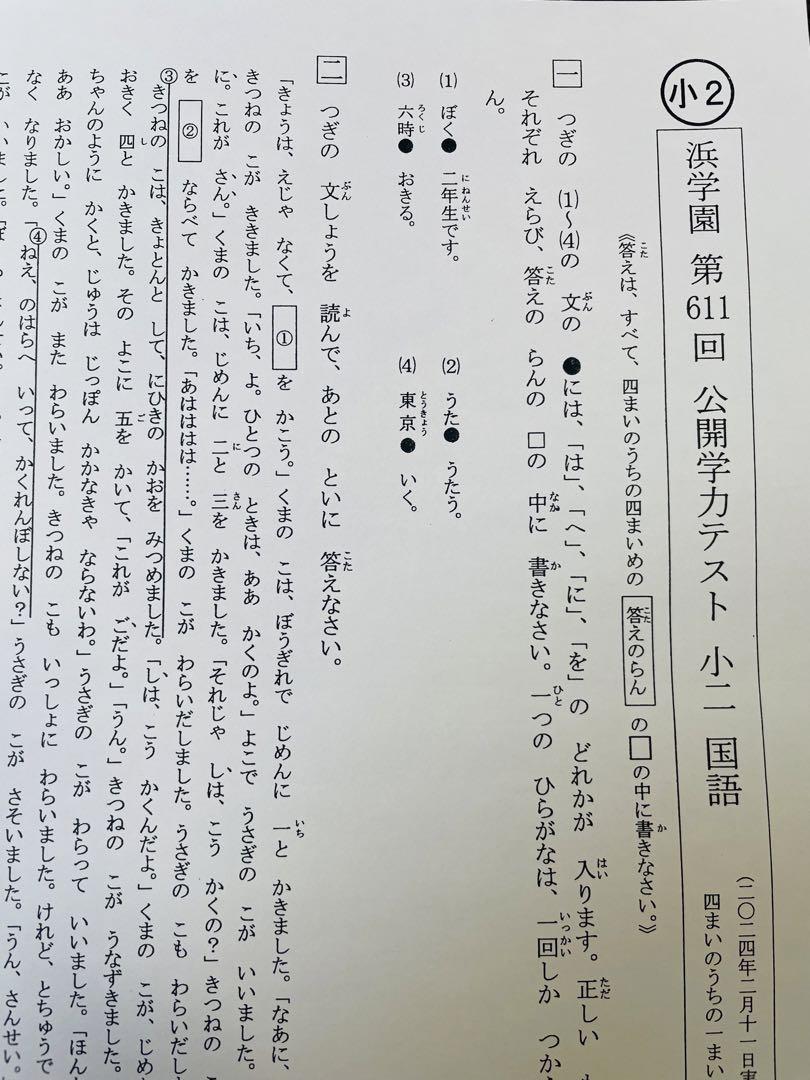 小2
浜学園 第611回 公開学力テスト 小二 国語
(二〇二四年二月十一日実
四まいのうちの一まい
《答えは、すべて、四まいのうちの四まいめの 答えのらん の□の中に書きなさい。》
一 つぎの ⑴〜⑷の 文の ●には、「は」、「へ」、「に」、「を」の どれかが 入ります。正しい
それぞれ えらび、答えの らんの □の 中に 書きなさい。一つの ひらがなは、一回しか つか
ん。
⑴ ぼく● 二年生です。
⑵ うた● うたう。
⑶ 六時● おきる。
⑷ 東京● いく。
二 つぎの 文しょうを 読んで、あとの といに 答えなさい。
「きょうは、えじゃ なくて、 ① を かこう。」くまの こは、ぼうぎれで じめんに 一と かきました。「なあに、
きつねの こが ききました。「いち、よ。ひとつの ときは、ああ かくのよ。」よこで うさぎの こが いいました。
に。これが さん。」くまの こは、じめんに 二と 三を かきました。「それじゃ しは、こう かくの？」きつねの
を ② ならべて かきました。「あはははは……。」くまの こが わらいだしました。うさぎの こも わらいだし
③きつねの こは、きょとんと して、にひきの かおを みつめました。「しは、こう かくんだよ。」くまの こが、じめ
おきく 四と かきました。その よこに 五を かいて、「これが ごだよ。」「うん。」きつねの こが うなずきました。
ちゃんのように かくと、じゅうは じっぽん かかなきゃ ならないわ。」うさぎの こが わらって いいました。「ほん
ああ おかしい。」くまの こが また わらいました。きつねの こも いっしょに わらいました。けれど、とちゅうで
なく なりました。「④ねえ、のはらへ いって、かくれんぼしない？」うさぎの こが さそいました。「うん、さんせい。
こが いいました。